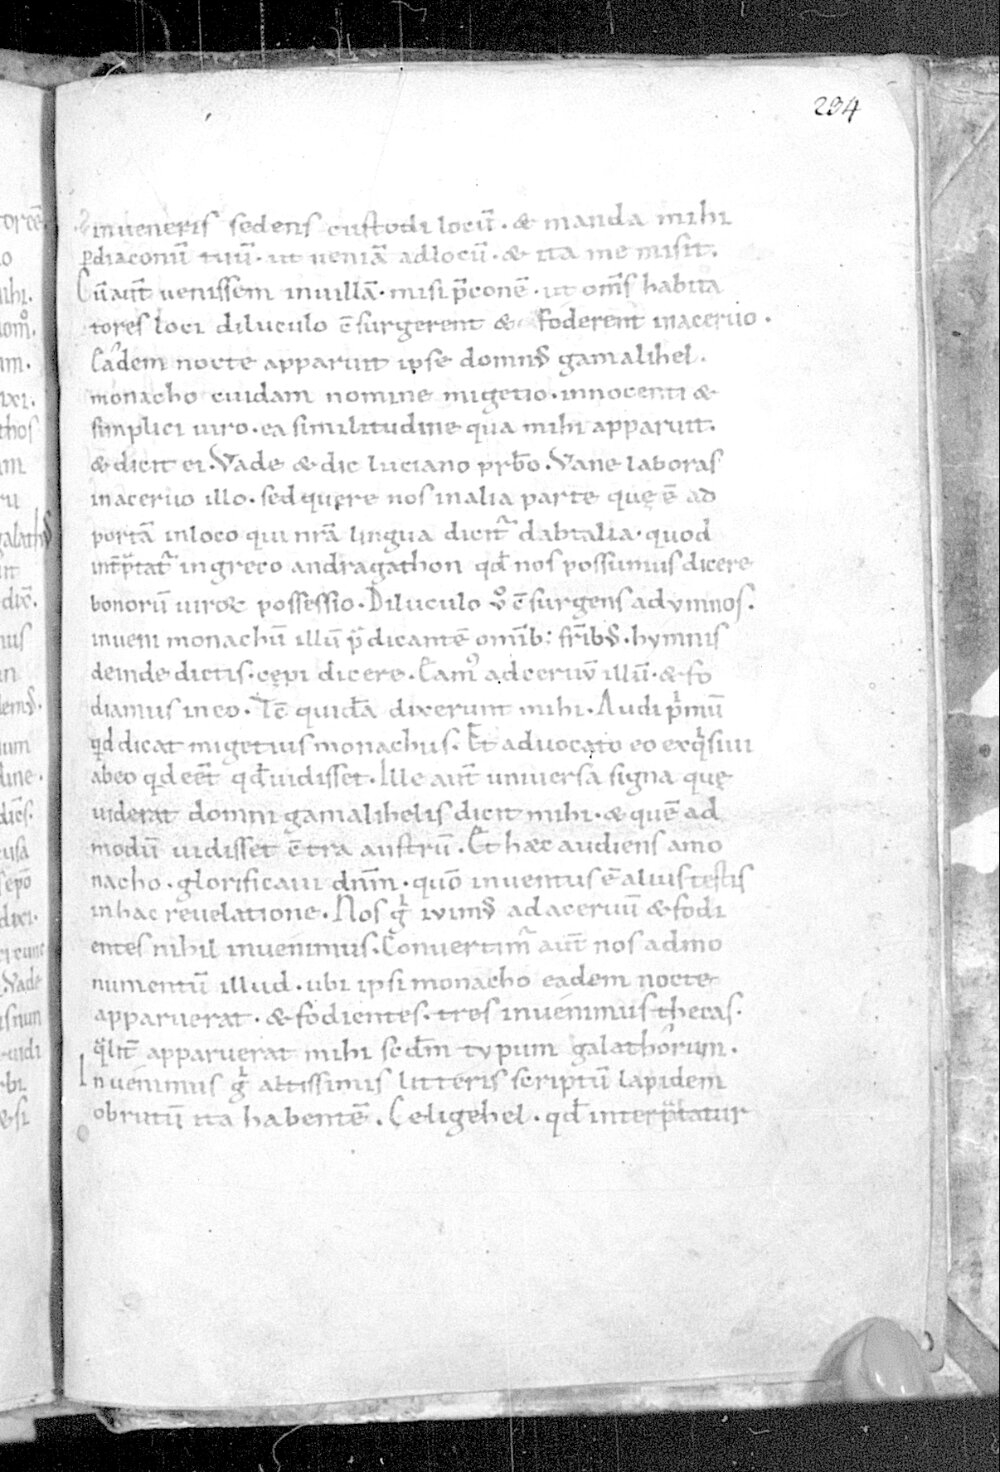 294
inveneris sedens custodi locū · & manda mihi
ꝑdiaconū tuū · ut veniā adlocū · & ita me misit.
Cū aut̄ venissem invillā · misi p̄conē · ut om̄s habita
tores loci diluculo c̄surgerent & foderent inacervo ·
Eadem nocte apparuit ipse domn᷒ gamalihel ·
monacho cuidam nomine migetio · innocenti &
simplici viro · ea similitudine qua mihi apparuit.
& dicit ei · Vade & dic luciano prb̄o · Vane laboras
inacervo illo · sed quęre nos inalia parte quę ē ad
portā inloco qui nr̄a lingua dicit᷑ dabtalia · quod
int̄p̄tat᷑ ingreco andragathon qd̄ nos possumus dicere
bonorū viroꝝ possessio · Diluculo v̊ c̄surgens adymnos ·
inveni monachū illū p̄dicantē omīb: fr̄ib᷒ · hymnis
deinde dictis · cępi dicere · Eam᷒ adcervū illū · & fo
diamus ineo · Tc̄ quidā dixerunt mihi · Audi p̄mū
qd dicat migetius monachus · Et advocato eo exq̇sivi
abeo qd eēt qd̄ vidisset · Ille aut̄ universa signa quę
viderat domni gamalihelis dicit mihi · & quē ad
modū vidisset c̄tra austrū · Et hæc audiens amo
nacho · glorificavi dn̄m · quō inventus ē alius testis
inhac revelatione · Nos g̊ ivim᷒ adacervū & fodi
entes nihil invenimus · Convertim᷒ aut̄ nos admo
numentū illud · ubi ipsi monacho eadem nocte
apparuerat · & fodientes · tres invenimus thecas ·
q̄lit̄ apparuerat mihi scdm̄ typum galathorum ·
Invenimus g̊ altissimis litteris scriptū lapidem
obrutū ita habentē · Celigehel · qd̄ interp̄tatur